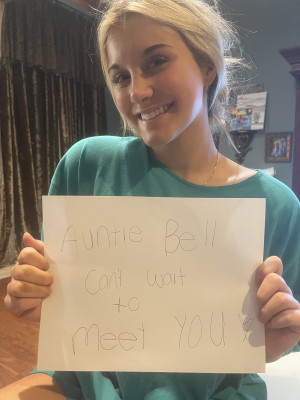 Auntie Bell
Can't wait
to
Meet YOU